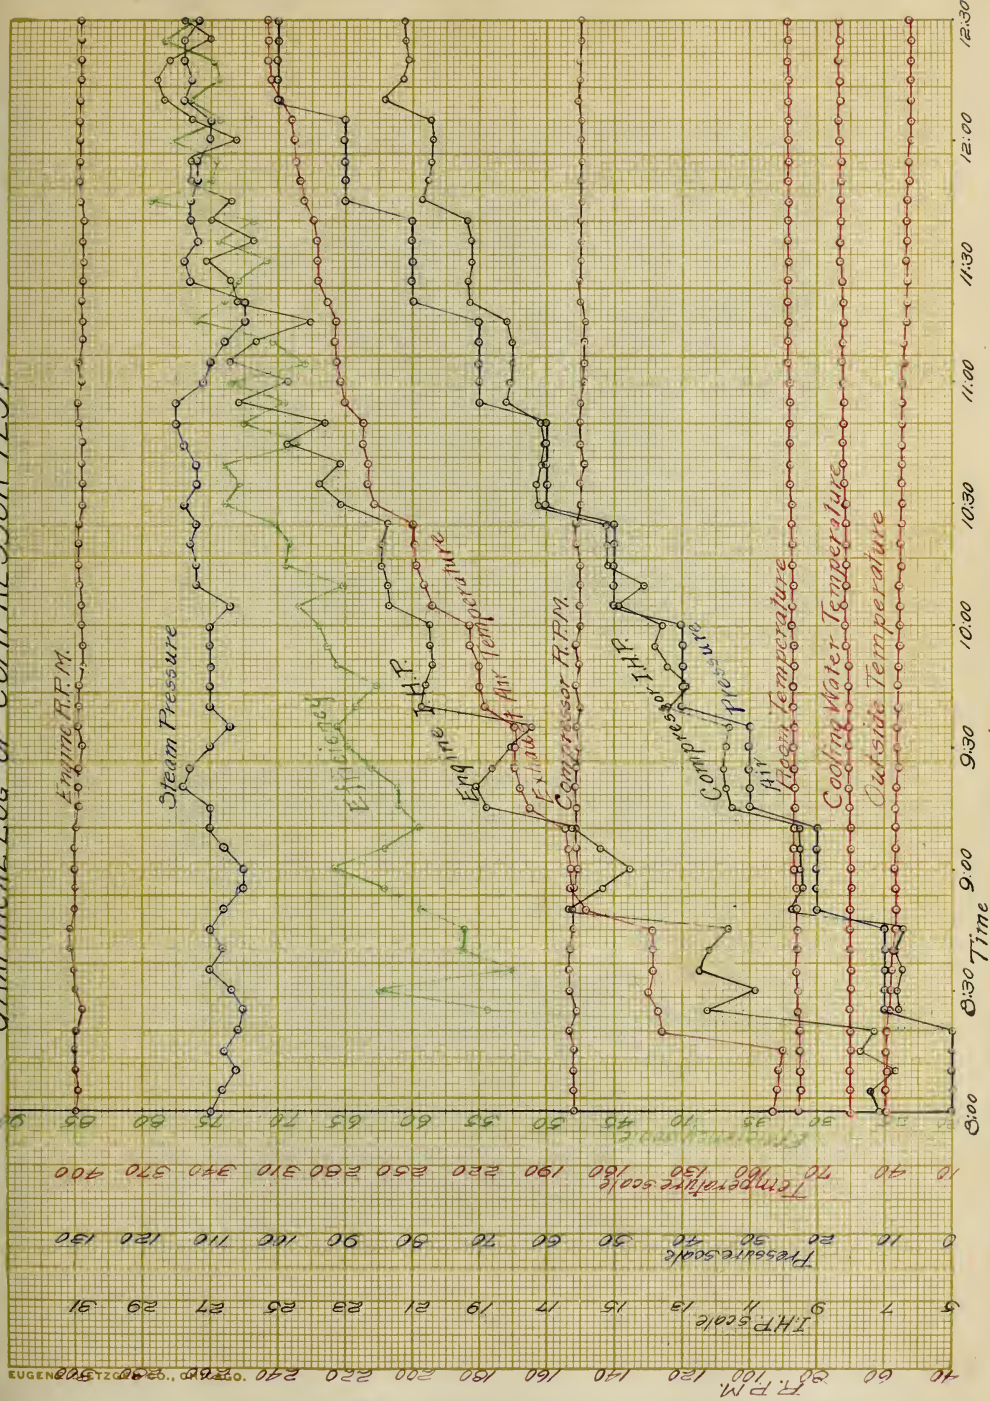 GRAPHICAL LOG OF COMPRESSOR TEST
Engine R.P.M.
Steam Pressure
Efficiency
Engine I.H.P.
Exhaust Air Temperature
Compressor R.P.M.
Compressor I.H.P.
Air Pressure
Room Temperature
Cooling Water Temperature
Outside Temperature
8:00 8:30 9:00 9:30 10:00 10:30 11:00 11:30 12:00 12:30
Time
90 85 80 75 70 65 60 55 50 45 40 35 30 25
Efficiency scale
400 370 340 310 280 250 220 190 160 130 100 70 40 10
Temperature scale
130 120 110 100 90 80 70 60 50 40 30 20 10 0
Pressure scale
31 29 27 25 23 21 19 17 15 13 11 9 7 5
I.H.P. scale
300 280 260 240 220 200 180 160 140 120 100 80 60 40
R.P.M.
EUGENE DIETZGEN CO., CHICAGO.